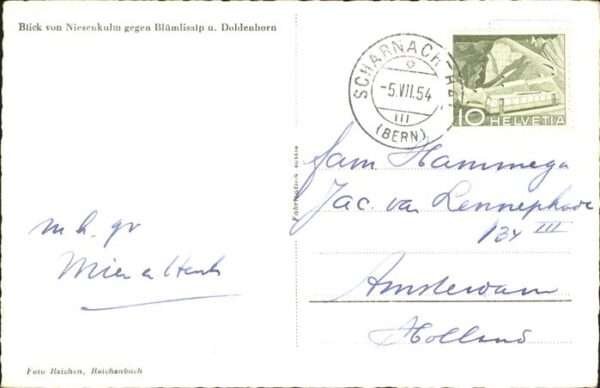 Blick von Niesenkulm gegen Blümlisalp u. Doldenhorn
SCHARNACH
-5.VII.54
III
(BERN)
10 HELVETIA
Fabrikation suisse
fam Hammega
Jac. van Lennepkade
134 III
Amsterdam
Holland
m. h. gr
Mien en Henk
Foto Reichen, Reichenbach